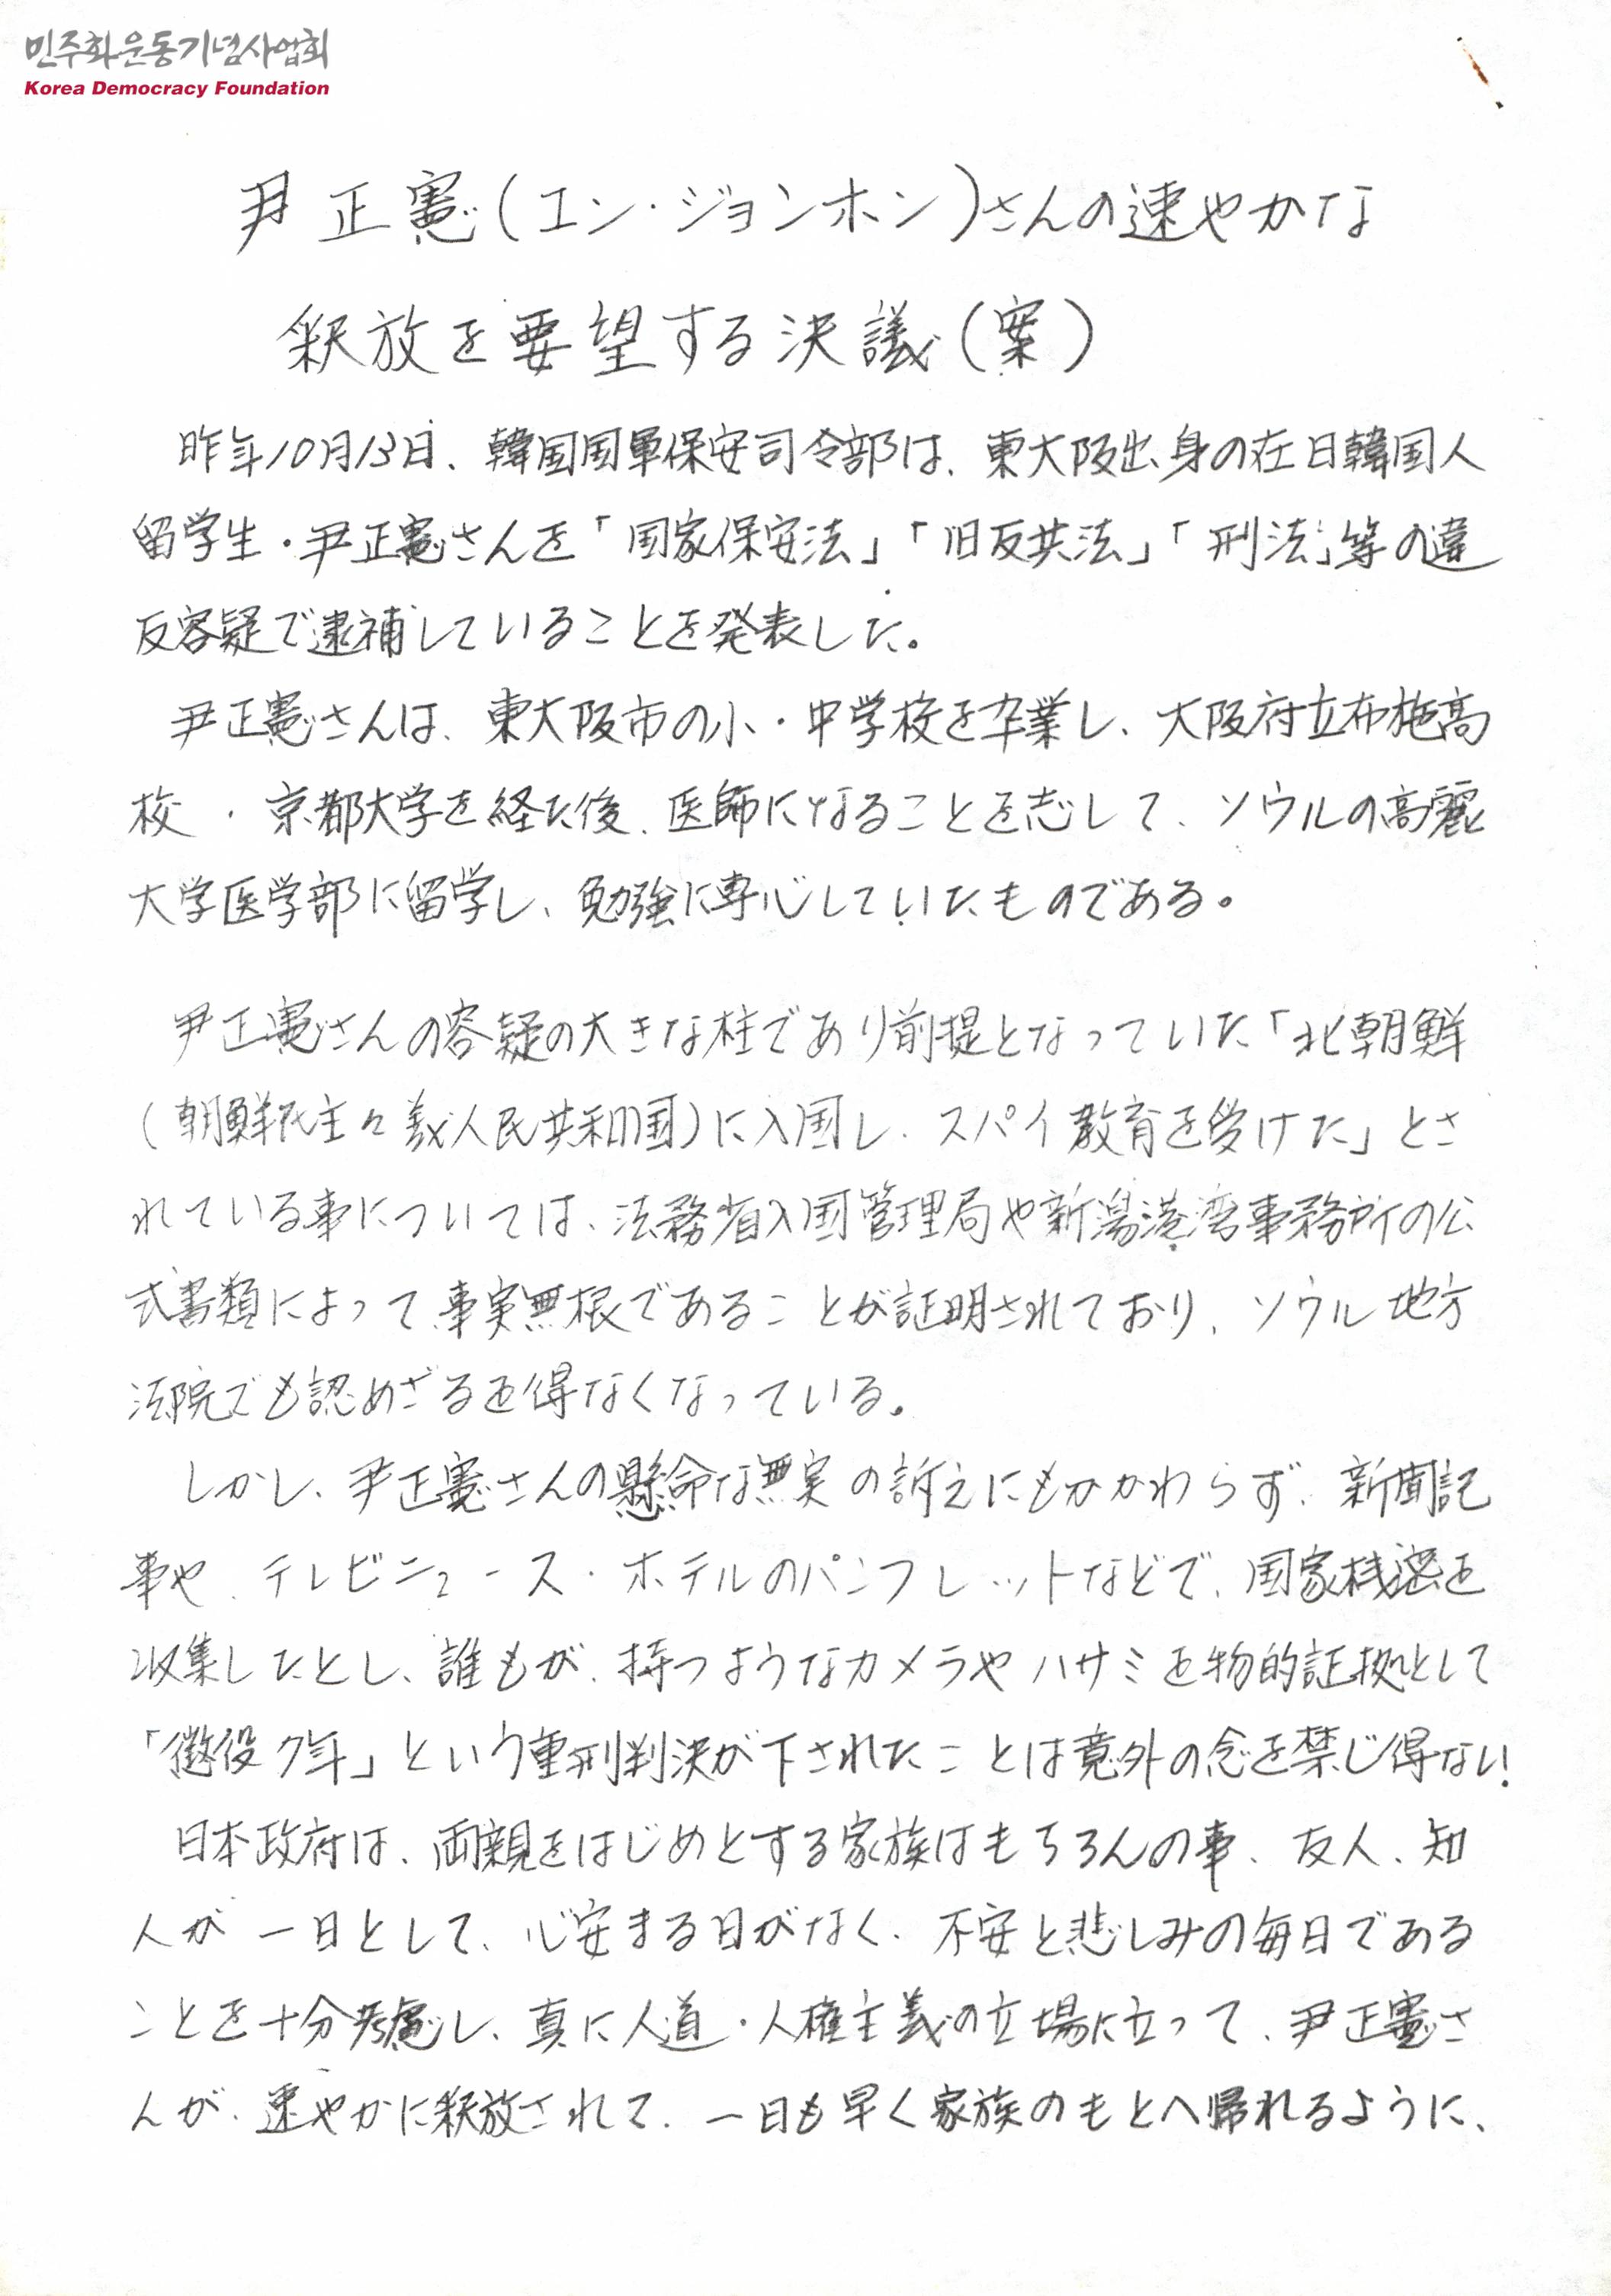 민주화운동기념사업회
Korea Democracy Foundation
尹正憲(エン・ジョンホン)さんの速やかな
釈放を要望する決議(案)
昨年10月13日、韓国国軍保安司令部は、東大阪出身の在日韓国人
留学生・尹正憲さんを「国家保安法」「旧反共法」「刑法」等の違
反容疑で逮補していることを発表した。
尹正憲さんは、東大阪市の小・中学校を卒業し、大阪府立布施高
校・京都大学を経た後、医師になることを志して、ソウルの高麗
大学医学部に留学し、勉強に専心していたものである。
尹正憲さんの容疑の大きな柱であり前提となっていた「北朝鮮
(朝鮮民主々義人民共和国)に入国し、スパイ教育を受けた」とさ
れている事については、法務省入国管理局や新潟港湾事務所の公
式書類によって事実無根であることが証明されており、ソウル地方
法院でも認めざるを得なくなっている。
しかし、尹正憲さんの懸命な無実の訴えにもかかわらず、新聞記
事や、テレビニュース・ホテルのパンフレットなどで、国家機密を
収集したとし、誰もが、持つようなカメラやハサミを物的証拠として
「懲役7年」という重刑判決が下されたことは意外の念を禁じ得ない!
日本政府は、両親をはじめとする家族はもちろんの事、友人、知
人が一日として、心安まる日がなく、不安と悲しみの毎日である
ことを十分考慮し、真に人道・人権主義の立場に立って、尹正憲さ
んが、速やかに釈放されて、一日も早く家族のもとへ帰れるように、